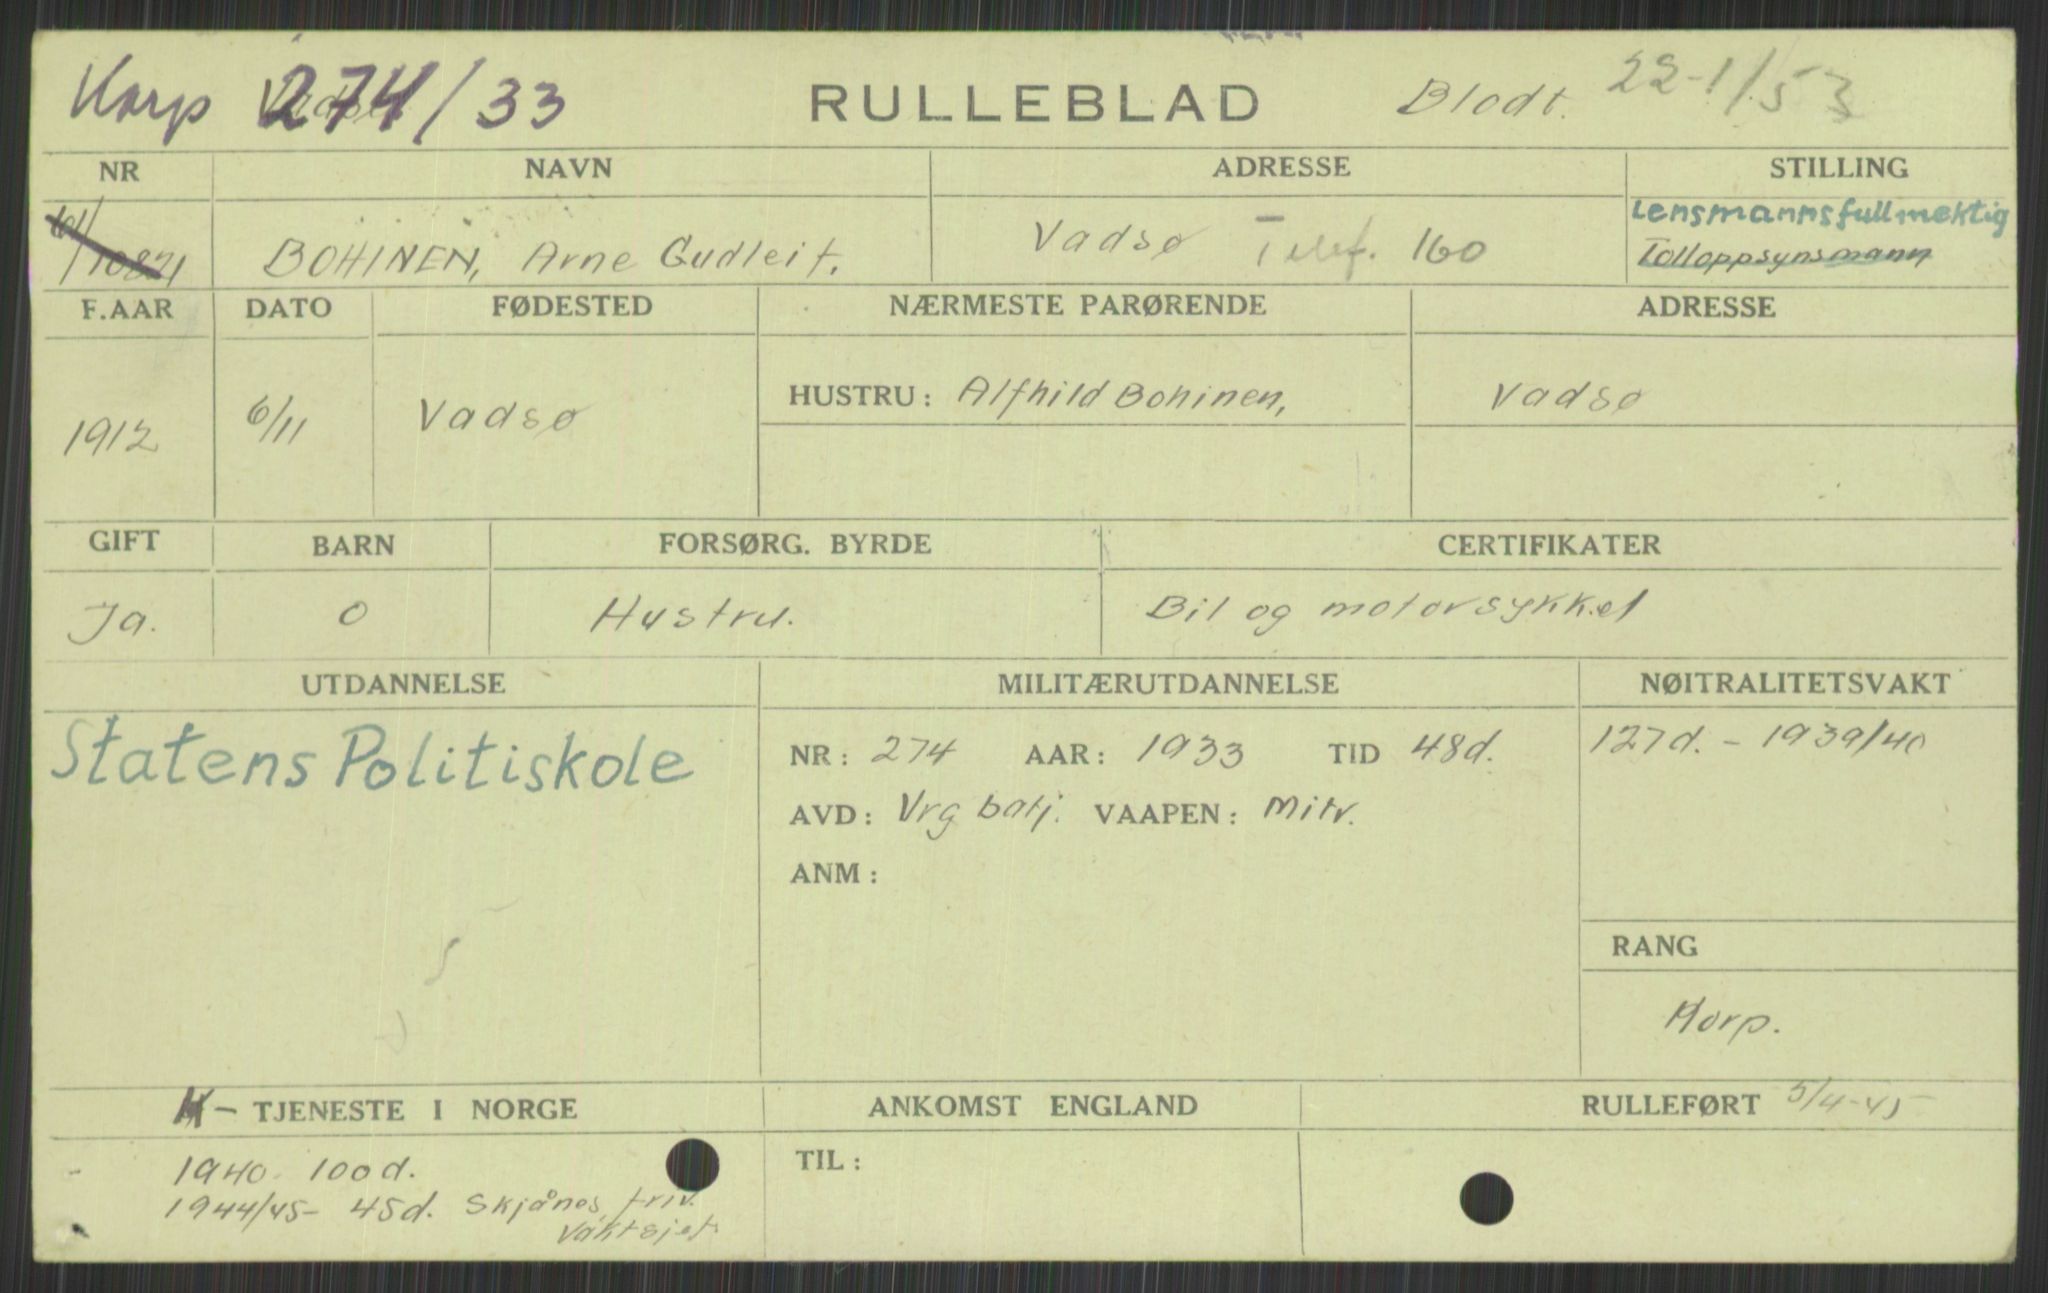 Korp 274/33 RULLEBLAD Blodt. 22-1/53
NR NAVN ADRESSE STILLING
Lensmannsfullmektig
BOHINEN, Arne Gudleif. Vadsø Telef. 160 Tolloppsynsmann
F.AAR DATO FØDESTED NÆRMESTE PARØRENDE ADRESSE
1912 6/11 Vadsø HUSTRU: Alfhild Bohinen, Vadsø
GIFT BARN FORSØRG. BYRDE CERTIFIKATER
Ja. 0 Hustru. Bil og motorsykkel
UTDANNELSE MILITÆRUTDANNELSE NØITRALITETSVAKT
Statens Politiskole NR: 274 AAR: 1933 TID 48d. 127d. - 1939/40
AVD: Vrg batj. VAAPEN: Mitr.
ANM:
RANG
Korp.
K - TJENESTE I NORGE ANKOMST ENGLAND RULLEFØRT 5/4-45
1940. 100d. TIL:
1944/45- 45d. Skjånes friv.